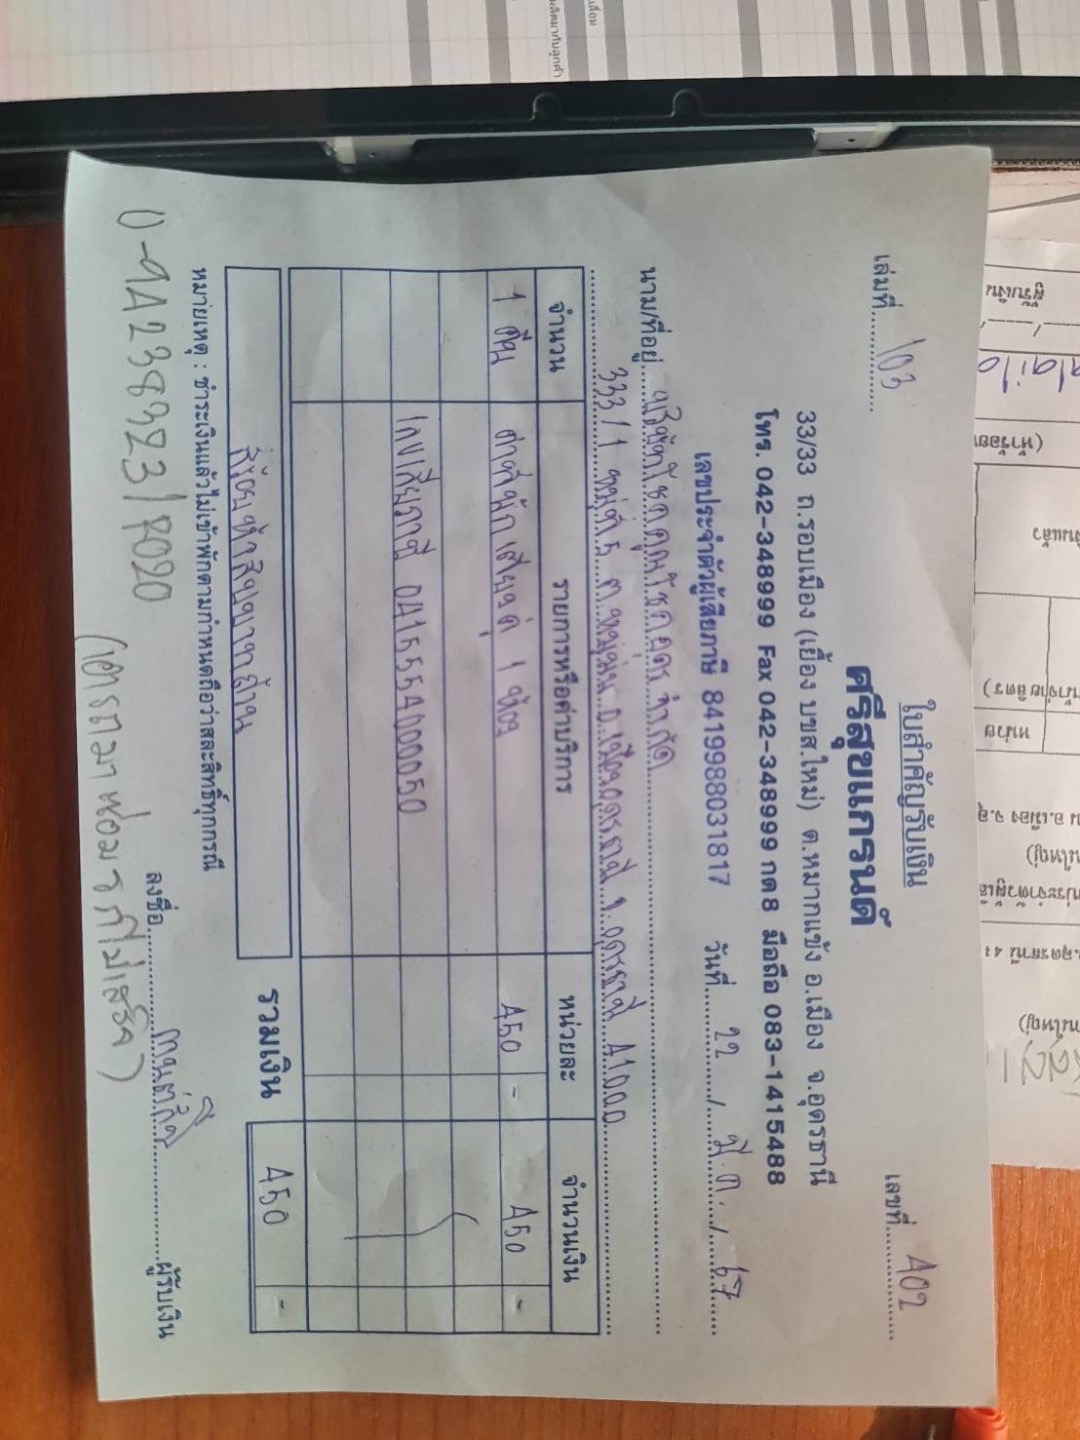 เล่มที่ 103
เลขที่ 402
ใบสำคัญรับเงิน
ศรีสุขแกรนด์
33/33 ถ.รอบเมือง (เยื้อง บขส.ใหม่) ต.หมากแข้ง อ.เมือง จ.อุดรธานี
โทร. 042-348999 Fax 042-348999 กด8 มือถือ 083-1415488
เลขประจำตัวผู้เสียภาษี 8419988031817 วันที่ 22 / มี.ค. / 67
นาม/ที่อยู่ บริษัทโชคคูณโชคอุดร จำกัด
333/1 หมู่ที่ 5 ต.หมูม่น อ.เมืองอุดรธานี จ.อุดรธานี 41000
จำนวน รายการหรือค่าบริการ หน่วยละ จำนวนเงิน
1 คืน ค่าที่พักเตียงคู่ 1 ห้อง 450 - 450 -
เลขเสียภาษี 0415554000050
สี่ร้อยห้าสิบบาทถ้วน รวมเงิน 450 -
หมายเหตุ : ชำระเงินแล้วไม่เข้าพักตามกำหนดถือว่าสละสิทธิ์ทุกกรณี
ลงชื่อ ผู้รับเงิน